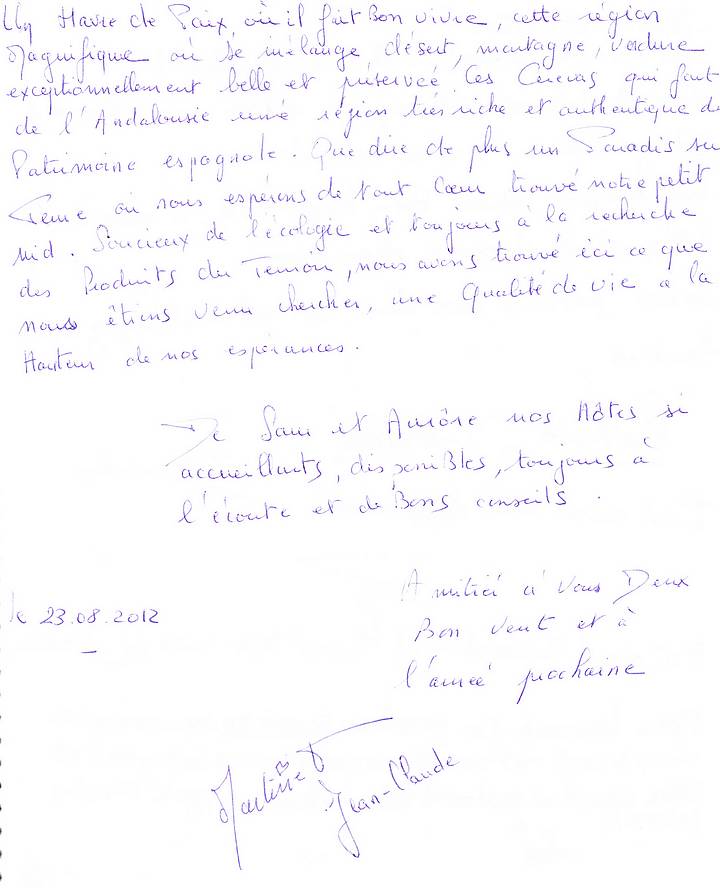 Un Havre de Paix, où il fait Bon vivre, cette région
Magnifique où se mélange désert, montagne, verdure
exceptionnellement belle et préservée. Ces Cuevas qui font
de l'Andalousie une région très riche et authentique du
Patrimoine espagnole. Que dire de plus un Paradis sur
Terre où nous espérons de tout Cœur trouvé notre petit
nid. Soucieux de l'écologie et toujours à la recherche
des Produits du Terroir, nous avons trouvé ici ce que
nous étions venu chercher, une Qualité de vie à la
Hauteur de nos espérances.
De et Aurore nos Hôtes si
accueillants, disponibles, toujours à
l'écoute et de Bons conseils.
Amitié à Vous Deux
le 23.08.2012
Bon Vent et à
l'année prochaine
Martine
Jean-Claude